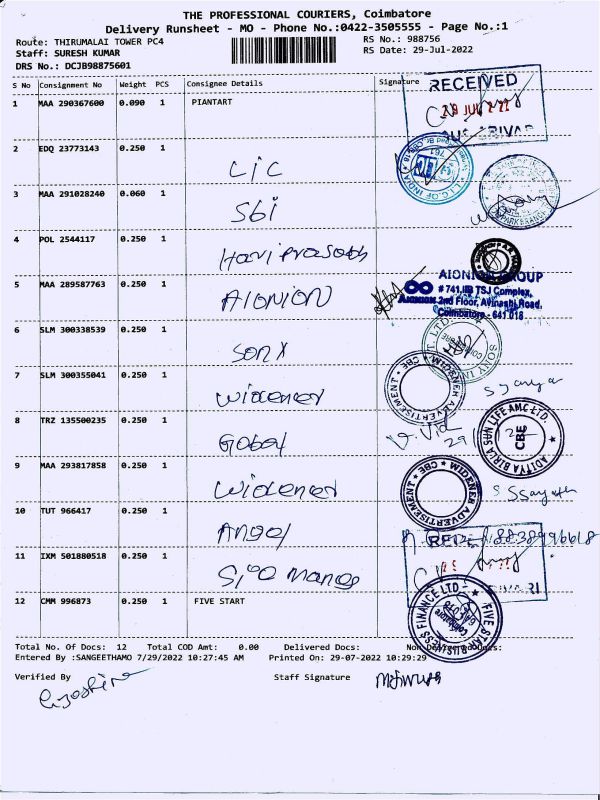 THE PROFESSIONAL COURIERS, Coimbatore
Delivery Runsheet - MO - Phone No.:0422-3505555 - Page No.:1
Route: THIRUMALAI TOWER PC4
RS No.: 988756
Staff: SURESH KUMAR
RS Date: 29-Jul-2022
DRS No.: DCJB98875601
S No Consignment No Weight PCS Consignee Details Signature
1 MAA 290367600 0.090 1 PIANTART
RECEIVED
2 EDQ 23773143 0.250 1
LIC
L.I.C. OF INDIA
3 MAA 291028240 0.060 1
SBI
4 POL 2544117 0.250 1
Hariprasath
5 MAA 289587763 0.250 1
AIONION
AIONION GROUP
# 741,IIB TSJ Complex,
2nd Floor, Avinashi Road,
Coimbatore - 641 018
6 SLM 300338539 0.250 1
7 SLM 300355041 0.250 1
Widener
WIDENER ADVERTISEMENT * CBE *
8 TRZ 135500235 0.250 1
ADITYA BIRLA SUN LIFE AMC LTD.
CBE
9 MAA 293817858 0.250 1
Widener
WIDENER ADVERTISEMENT * CBE *
10 TUT 966417 0.250 1
Angel
8838996618
11 IXM 501880518 0.250 1
12 CMM 996873 0.250 1 FIVE START
FIVE STAR BUSINESS FINANCE LTD
Total No. Of Docs: 12 Total COD Amt: 0.00 Delivered Docs: Non Delivered Docs:
Entered By :SANGEETHAMO 7/29/2022 10:27:45 AM Printed On: 29-07-2022 10:29:29
Verified By Staff Signature